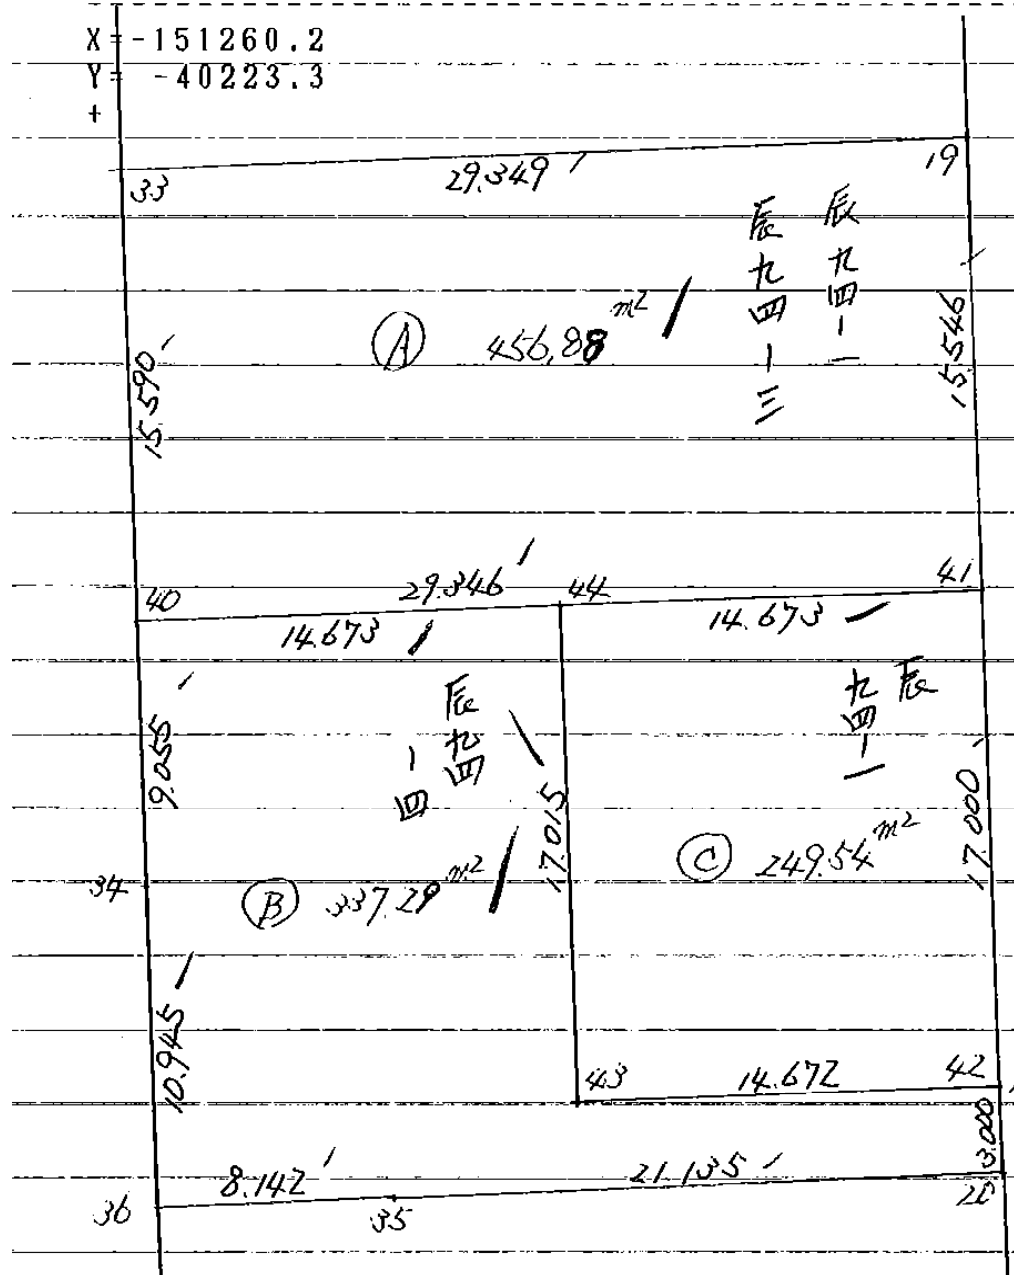 X=-151260.2
Y= -40223.3
+
33
29.349
19
辰九四-一
辰九四-三
Ⓐ 456.88 m2
15.590
15.546
40
29.346
44
41
14.673
14.673
辰九四
-四
辰
九四-一
9.055
17.015
17.000
34
Ⓑ 337.29 m2
Ⓒ 249.54 m2
10.945
43
14.672
42
3.000
8.142
21.135
36
35
20